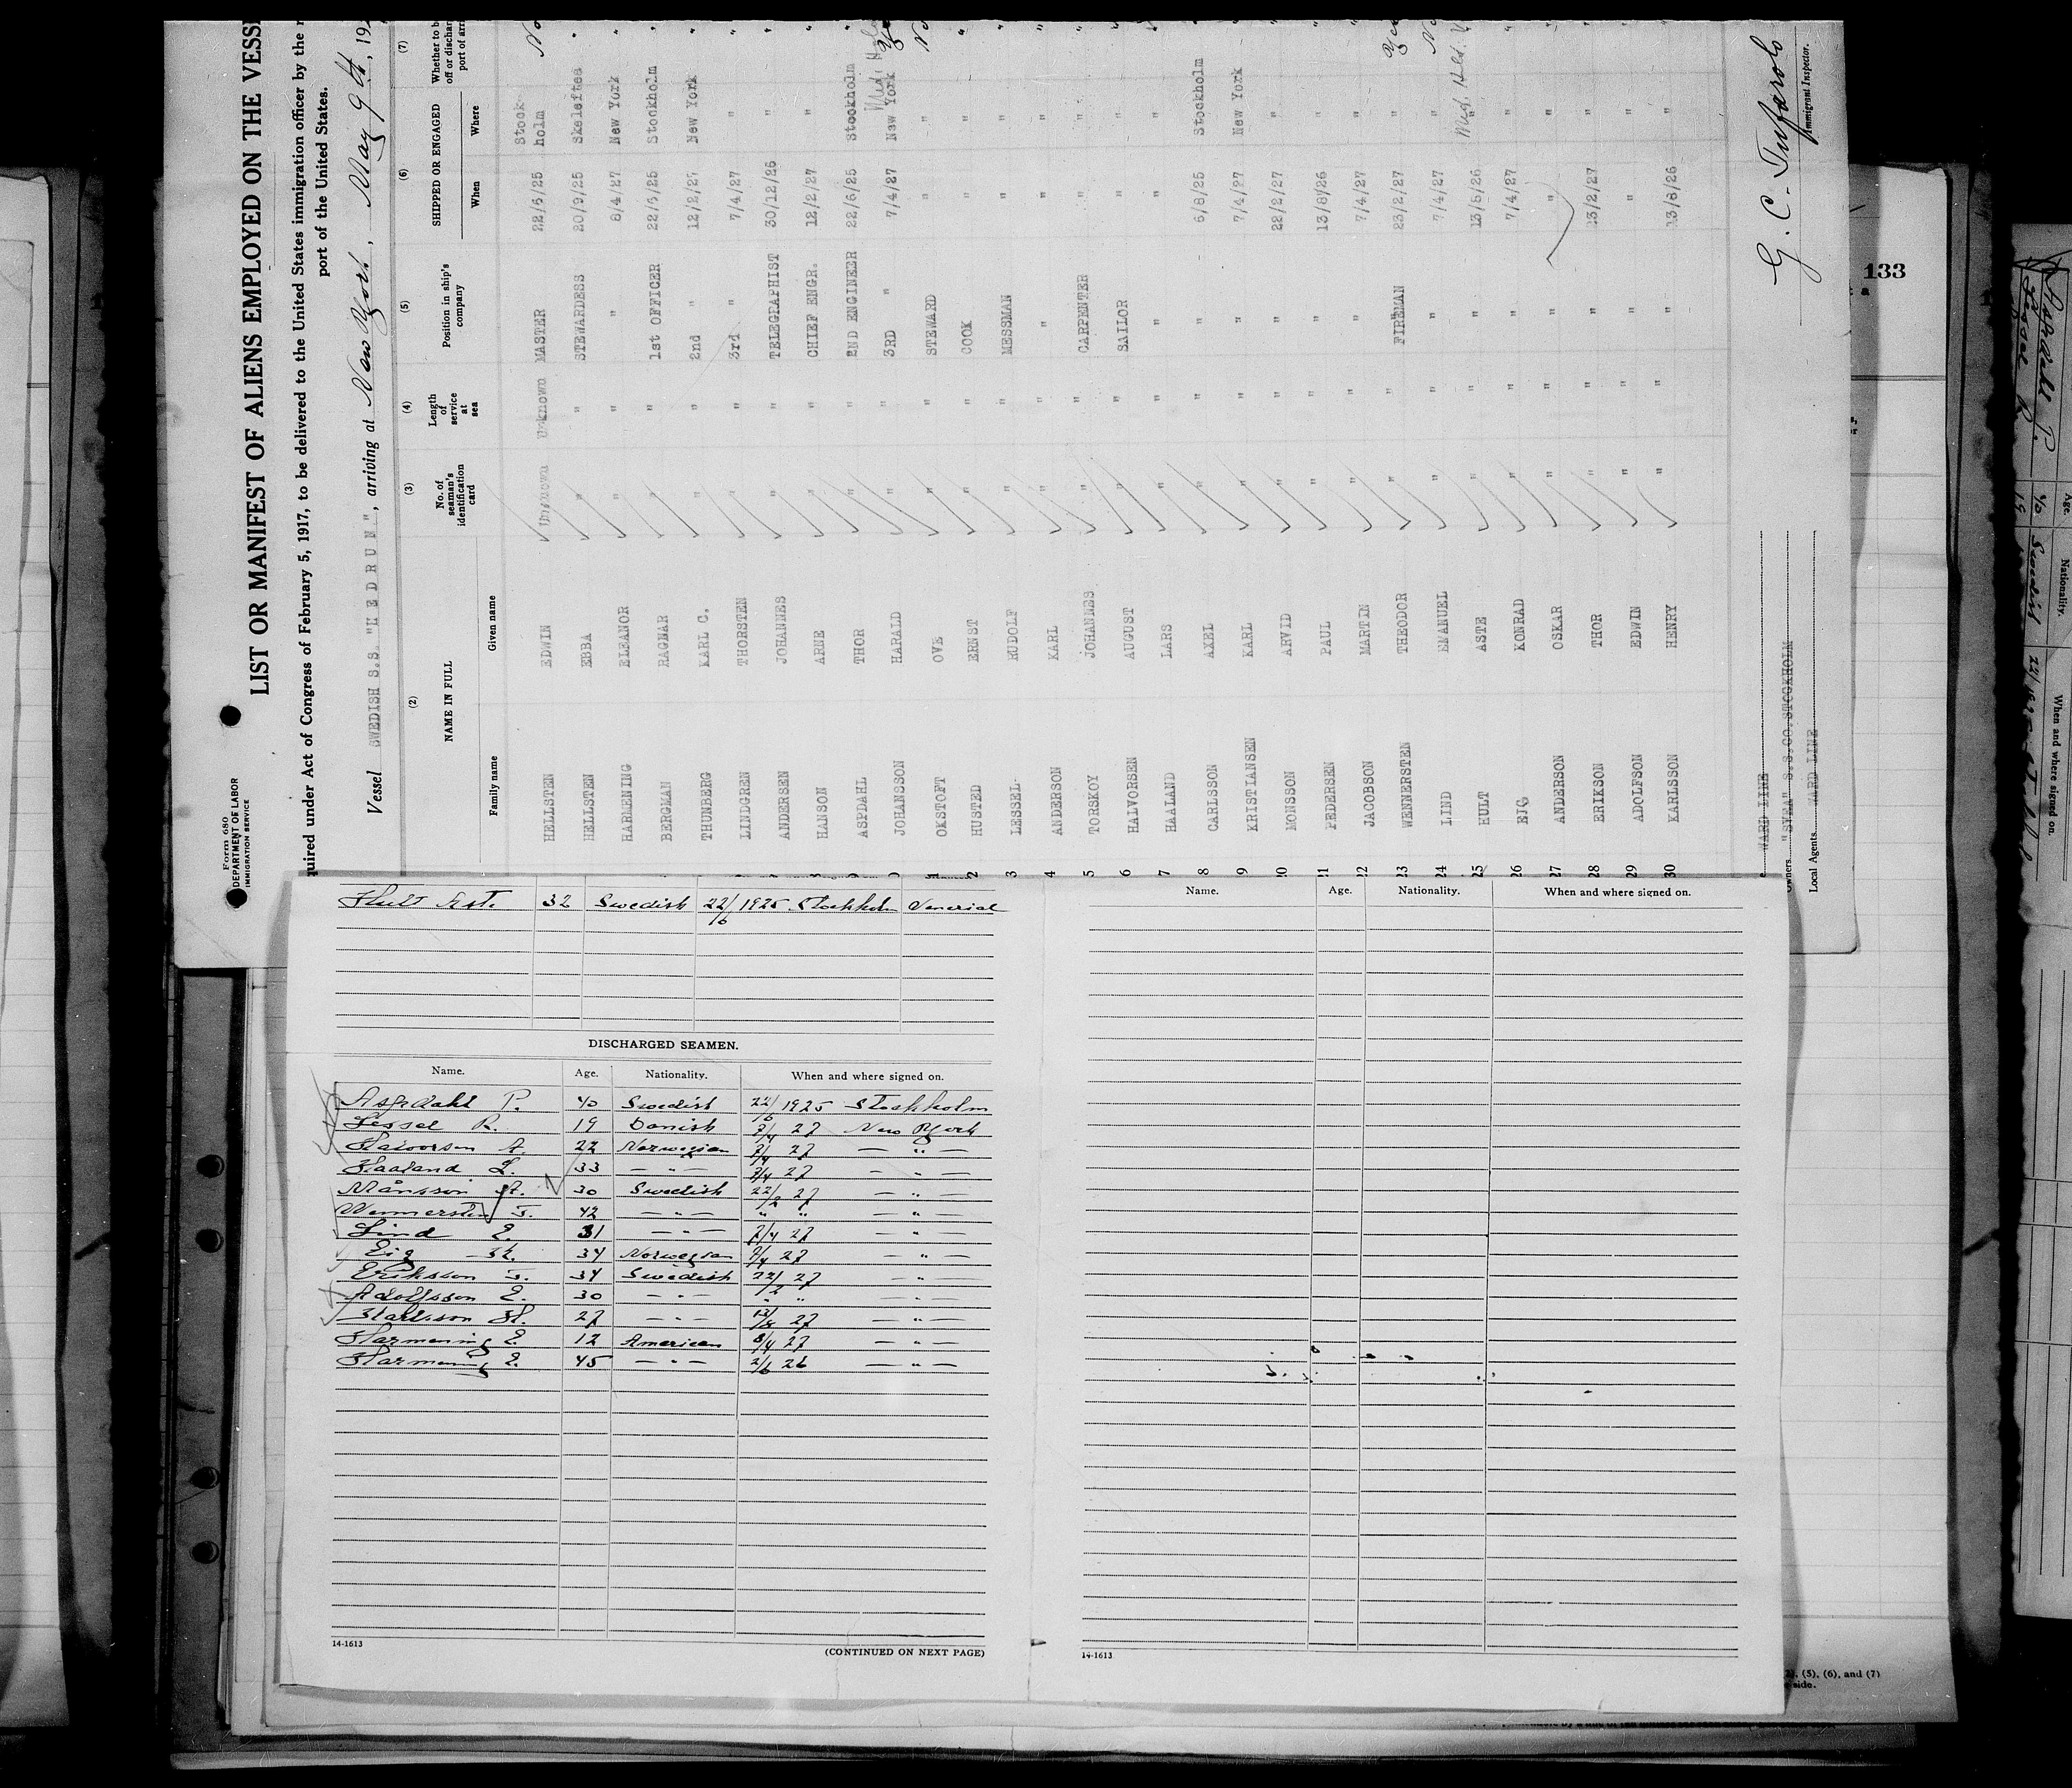 Form 680
DEPARTMENT OF LABOR
IMMIGRATION SERVICE
LIST OR MANIFEST OF ALIENS EMPLOYED ON THE VESSE
quired under Act of Congress of February 5, 1917, to be delivered to the United States immigration officer by the r
port of the United States.
Vessel SWEDISH S.S. "HEDRUN", arriving at New York, May 9th, 192
(2) (3) (4) (5) (6) (7)
NAME IN FULL No. of seaman's identification card Length of service at sea Position in ship's company SHIPPED OR ENGAGED Whether to b off or dischar port of arr
Family name Given name When Where
HELLSTEN EDWIN Unknown Unknown MASTER 22/6/25 Stock-holm No
HELLSTEN EBBA " " STEWARDESS 20/9/25 Skeleftea "
HARMENING ELEANOR " " " 8/4/27 New York "
BERGMAN RAGNAR " " 1st OFFICER 22/6/25 Stockholm "
THUNBERG KARL C. " " 2nd " 12/2/27 New York "
LINDGREN THORSTEN " " 3rd " 7/4/27 " "
ANDERSEN JOHANNES " " TELEGRAPHIST 30/12/26 " "
HANSON ARNE " " CHIEF ENGR. 12/2/27 " "
ASPDAHL THOR " " 2ND ENGINEER 22/6/25 Stockholm "
JOHANSSON HARALD " " 3RD " 7/4/27 New York
OKSTOFT OVE " " STEWARD " " No
HUSTED ERNST " " COOK " " "
3 LESSEL RUDOLF " " MESSMAN " " "
4 ANDERSON KARL " " " " " "
5 TORSKOY JOHANNES " " CARPENTER " " "
6 HALVORSEN AUGUST " " SAILOR " " "
7 HAALAND LARS " " " " " "
8 CARLSSON AXEL " " " 6/8/25 Stockholm "
9 KRISTIANSEN KARL " " " 7/4/27 New York "
20 MONSSON ARVID " " " 22/2/27 " "
21 PEDERSEN PAUL " " " 13/8/26 " "
22 JACOBSON MARTIN " " " 7/4/27 " "
23 WENNERSTEN THEODOR " " FIREMAN 23/2/27 " Yes
24 LIND EMANUEL " " " 7/4/27 " No
25 HULT ASTE " " " 13/8/26 "
26 EIG KONRAD " " " 7/4/27 " "
27 ANDERSON OSKAR " " " " " "
28 ERIKSON THOR " " " 23/2/27 " "
29 ADOLFSON EDWIN " " " " " "
30 KARLSSON HENRY " " " 13/8/26 " "
WARD LINE
Owners "SVEA" S.S.CO. STOCKHOLM
Local Agents WARD LINE
G. C. Tufarolo
Immigrant Inspector.
133
Hult Aste 32 Swedish 22/6 1925 Stockholm Venerial
DISCHARGED SEAMEN.
Name. Age. Nationality. When and where signed on.
Aspdahl T. 40 Swedish 22/6 1925 Stockholm
Lessel R. 19 Danish 7/4 27 New York
Halvorsen A. 22 Norwegian 7/4 27 — " —
Haaland L. 33 — " — 7/4 27 — " —
Månsson A. 30 Swedish 22/2 27 — " —
Wennersten T. 42 — " — " " — " —
Lind E. 31 — " — 7/4 27 — " —
Eig K. 34 Norwegian 7/4 27 — " —
Eriksson T. 34 Swedish 22/2 27 — " —
Adolfsson E. 30 — " — " " — " —
Karlsson H. 27 — " — 13/8 27 — " —
Harmening E. 12 American 8/4 27 — " —
Harmening E. 45 — " — 2/6 26 — " —
14-1613
(CONTINUED ON NEXT PAGE)
Name. Age. Nationality. When and where signed on.
14-1613
(5), (6), and (7)
side.
Age. Nationality. When and where signed on.
Aspdahl T. 40 Swedish
Lessel R. 19